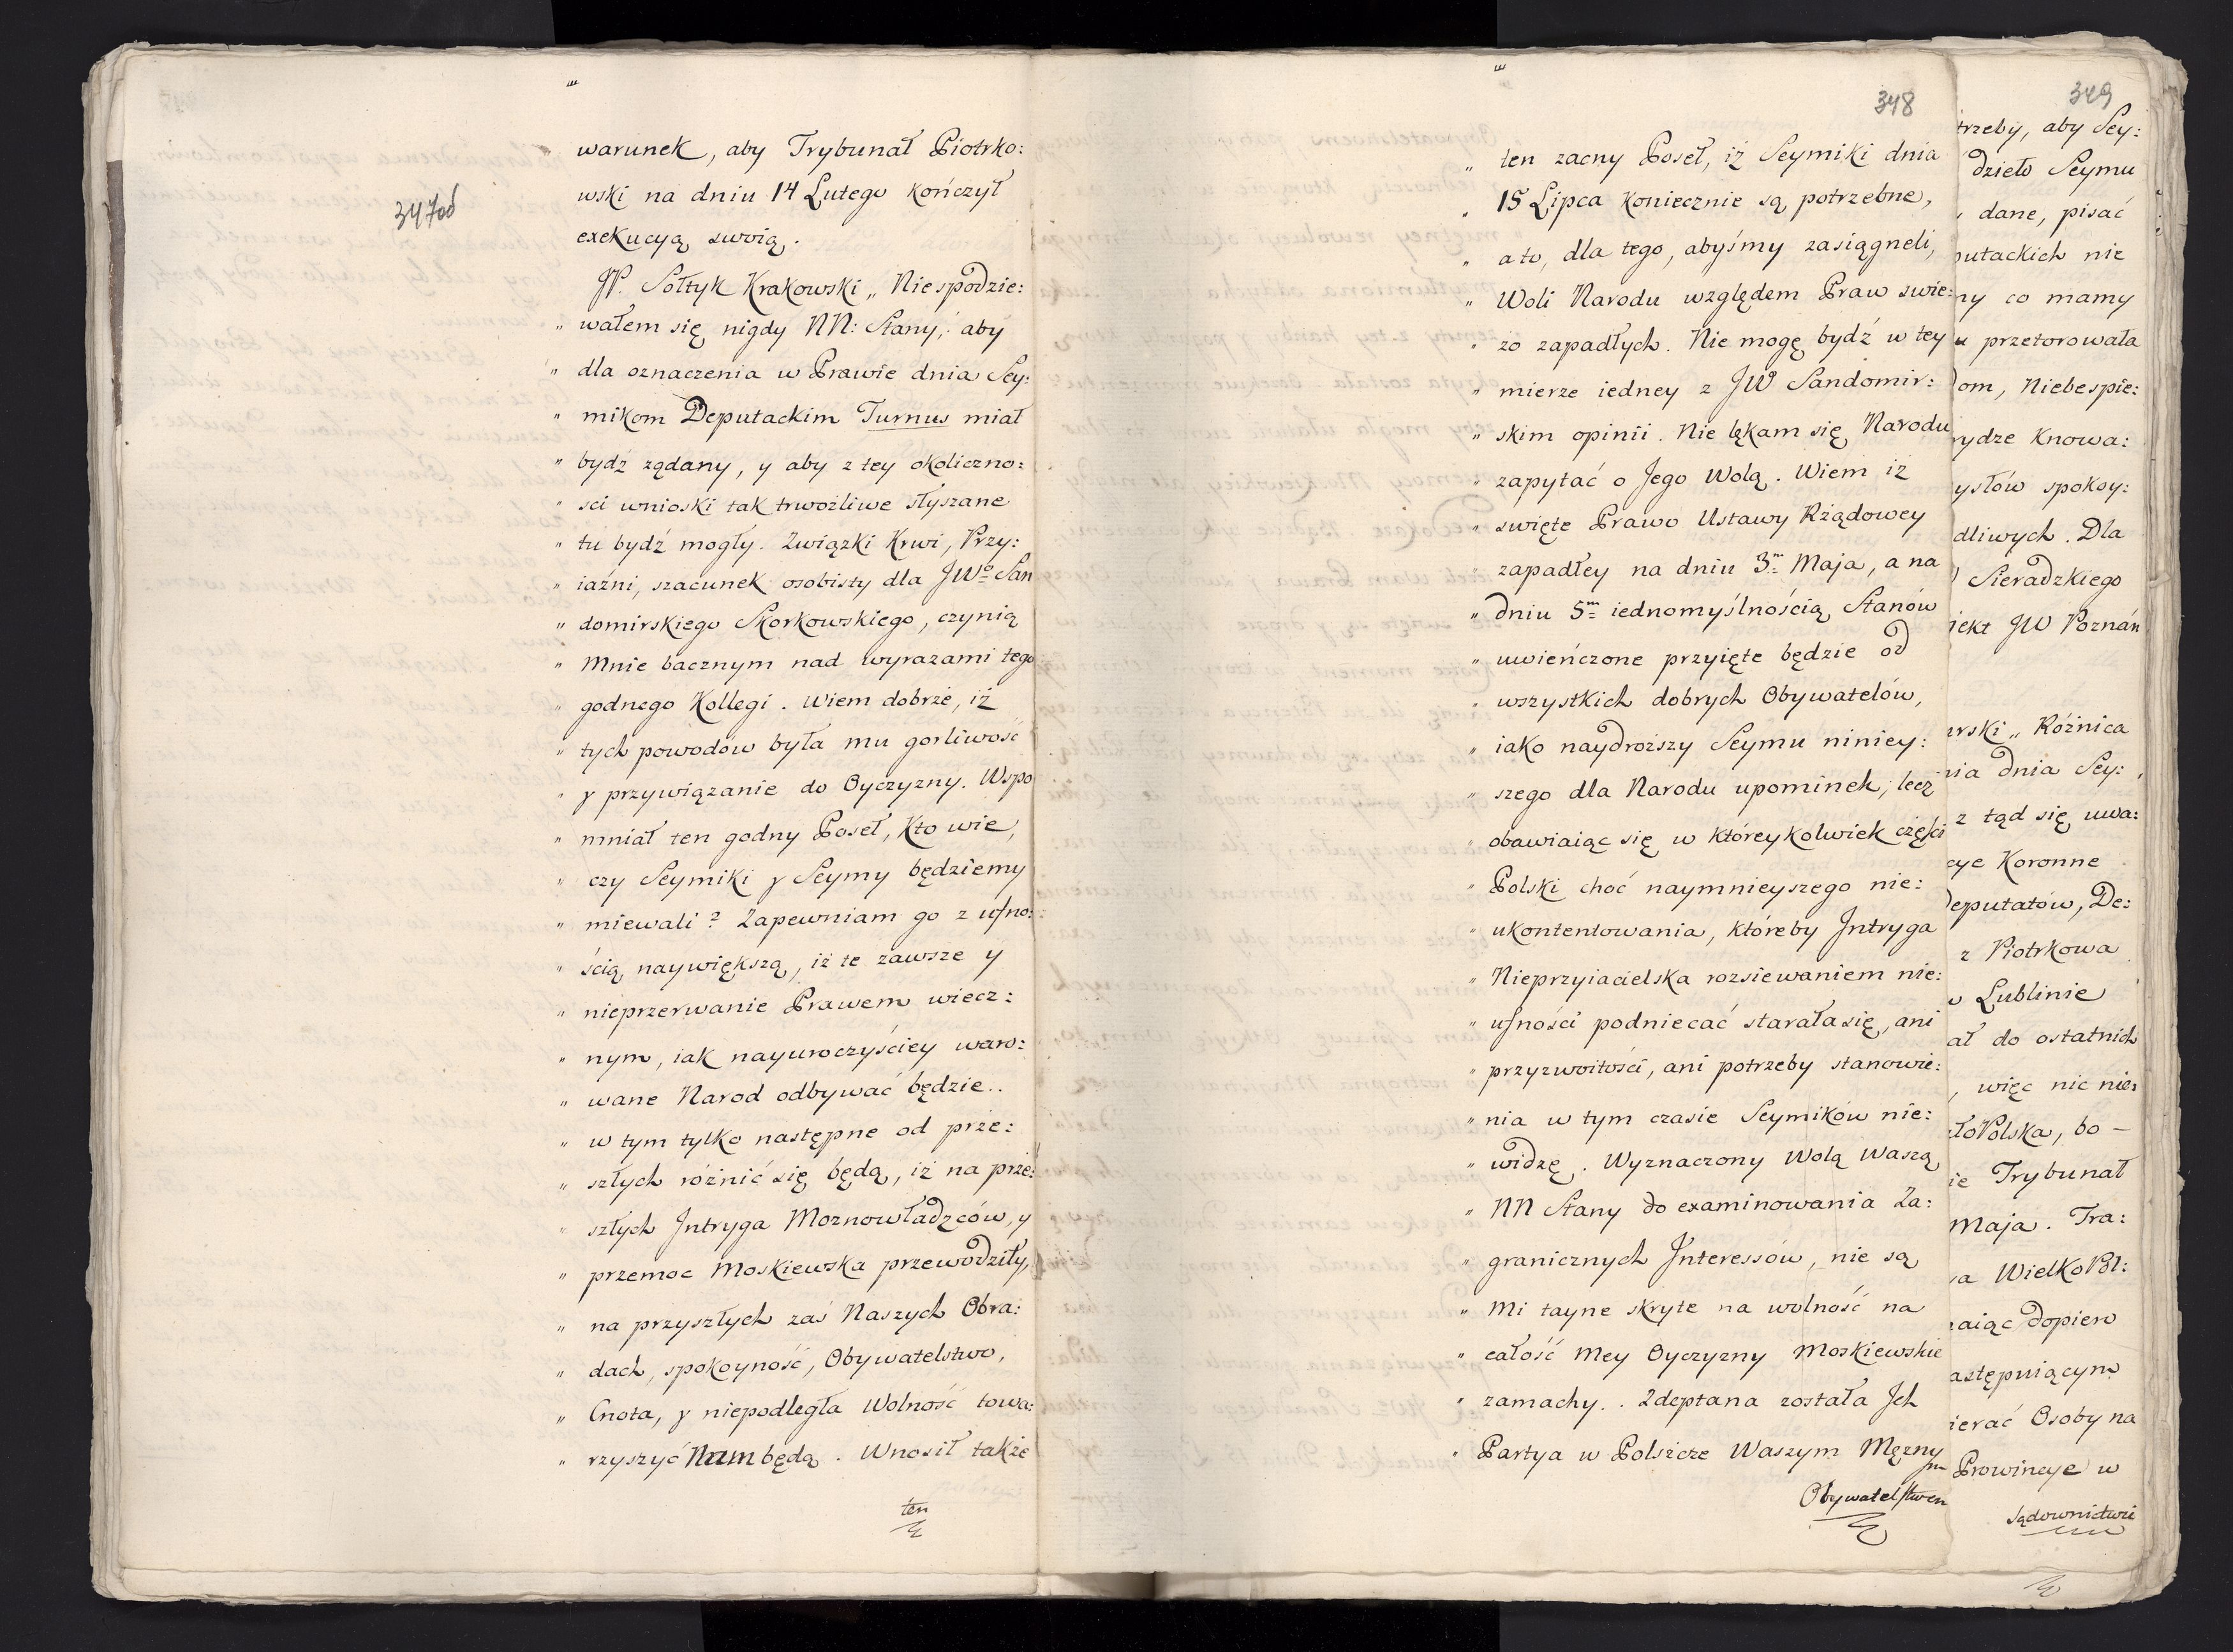 347od
warunek, aby Trybunał Piotrko:
wski na dniu 14 Lutego kończył
exekucyą swoią.
JP. Sołtyk Krakowski „ Niespodzie:
„ wałem się nigdy NN: Stany, aby
„ dla oznaczenia w Prawie dnia Sey:
„ mikom Deputackim Turnus miał
„ bydź żądany, y aby z tey okoliczno:
„ sci wnioski tak trwożliwe słyszane
„ tu bydź mogły. Związki Krwi, Przy:
„ iaźni, szacunek osobisty dla JWo San
„ domirskiego Skorkowskiego, czynią
„ Mnie bacznym nad wyrazami tego
„ godnego Kollegi. Wiem dobrze, iż
„ tych powodów była mu gorliwość
„ y przywiązanie do Oyczyzny. Wspo
„ mniał ten godny Poseł, Kto wie,
„ czy Seymiki y Seymy będziemy
„ miewali? Zapewniam go z ufno:
„ ścią naywiększą, iż te zawsze y
„ nieprzerwanie Prawem wiecz:
„ nym, iak nayuroczyściey waro:
„ wane Narod odbywać będzie..
„ w tym tylko następne od prze:
„ szłych różnić się będą, iż na prze:
„ szłych Jntryga Moznowładzców, y
„ przemoc Moskiewska przewodziły,
„ na przyszłych zaś Naszych Obra:
„ dach, spokoyność, Obywatelstwo,
„ Cnota, y niepodległa Wolność towa:
„ rzyszyć Nam będą. Wnosił także
ten
348
„ ten zacny Poseł, iż Seymiki dnia
„ 15 Lipca Koniecznie są potrzebne,
„ a to, dla tego, abyśmy zasiągneli,
„ Woli Narodu względem Praw swie:
„ żo zapadłych. Nie mogę bydź w tey
„ mierze iedney z JW Sandomir:
„ skim opinii. Nie lękam się Narodu
„ zapytać o Jego Wolą. Wiem iż
„ swięte Prawo Ustawy Rządowey
„ zapadłey na dniu 3m Maja, a na
„ dniu 5m iednomyślnością Stanów
„ uwieńczone przyięte będzie od
„ wszystkich dobrych Obywatelów,
„ iako naydroższy Seymu niniey:
„ szego dla Narodu upominek, lecz
„ obawiaiąc się w któreykolwiek części
„ Polski choć naymnieyszego nie:
„ ukontentowania, któreby Jntryga
„ Nieprzyiacielska rozsiewaniem nie:
„ ufności podniecać starała się, ani
„ przyzwoitości, ani potrzeby stanowie:
„ nia w tym czasie Seymików nie:
„ widzę. Wyznaczony Wolą Waszą
„ NN Stany do examinowania Za:
„ granicznych Jnteressów, nie są
„ Mi tayne skryte na wolność na
„ całość Mey Oyczyzny Moskiewskie
„ zamachy.. Zdeptana została Jch
„ Partya w Polszcze Waszym Mężny
m
Obywatelstwem
349
trzeby, aby Sey:
dzieło Seymu
dane, pisać
putackich nie
ny co mamy
u przetorowała
dom, Niebespie:
rydze Knowa:
ysłów spokoy:
dliwych. Dla
Sieradzkiego
iekt JW Poznań
urski „ Różnica
nia dnia Sey:
z tąd się uwa:
cye Koronne
Deputatów, De:
z Piotrkowa
w Lublinie
ał do ostatnich
, więc nic nie:
łoPolska, bo –
ie Trybunał
Maja. Tra:
va WielkoPol:
raiąc dopiero
astępuiącym
ierać Osoby na
Prowincye w
sądownictwie